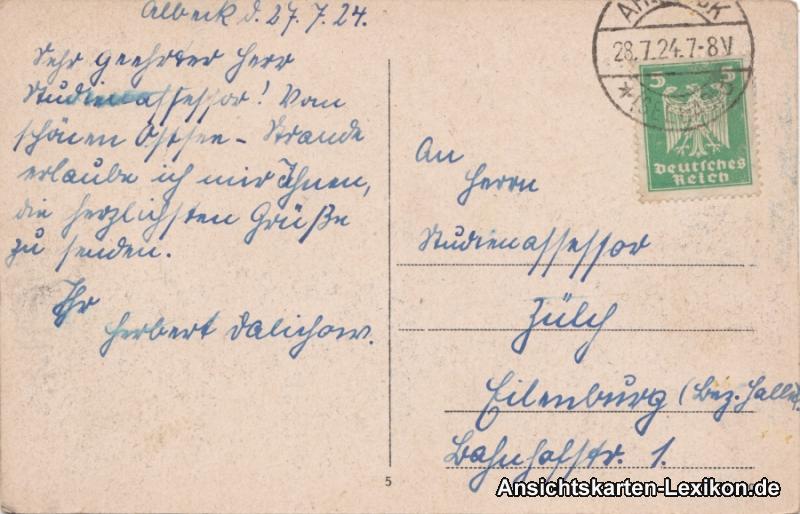 Albeck d. 27. 7. 24.
Sehr geehrter Herr
Studienassessor! Vom
schönen Ostsee-Strande
erlaube ich mir Ihnen,
die herzlichsten Grüße
zu senden.
Ihr
Herbert Dalichow.
28.7.24.7-8V
5 5
Deutsches
Reich
An
Herrn
Studienassessor
Zülch
Eilenburg (Bez. Halle)
Bahnhofstr. 1.
5
Ansichtskarten-Lexikon.de